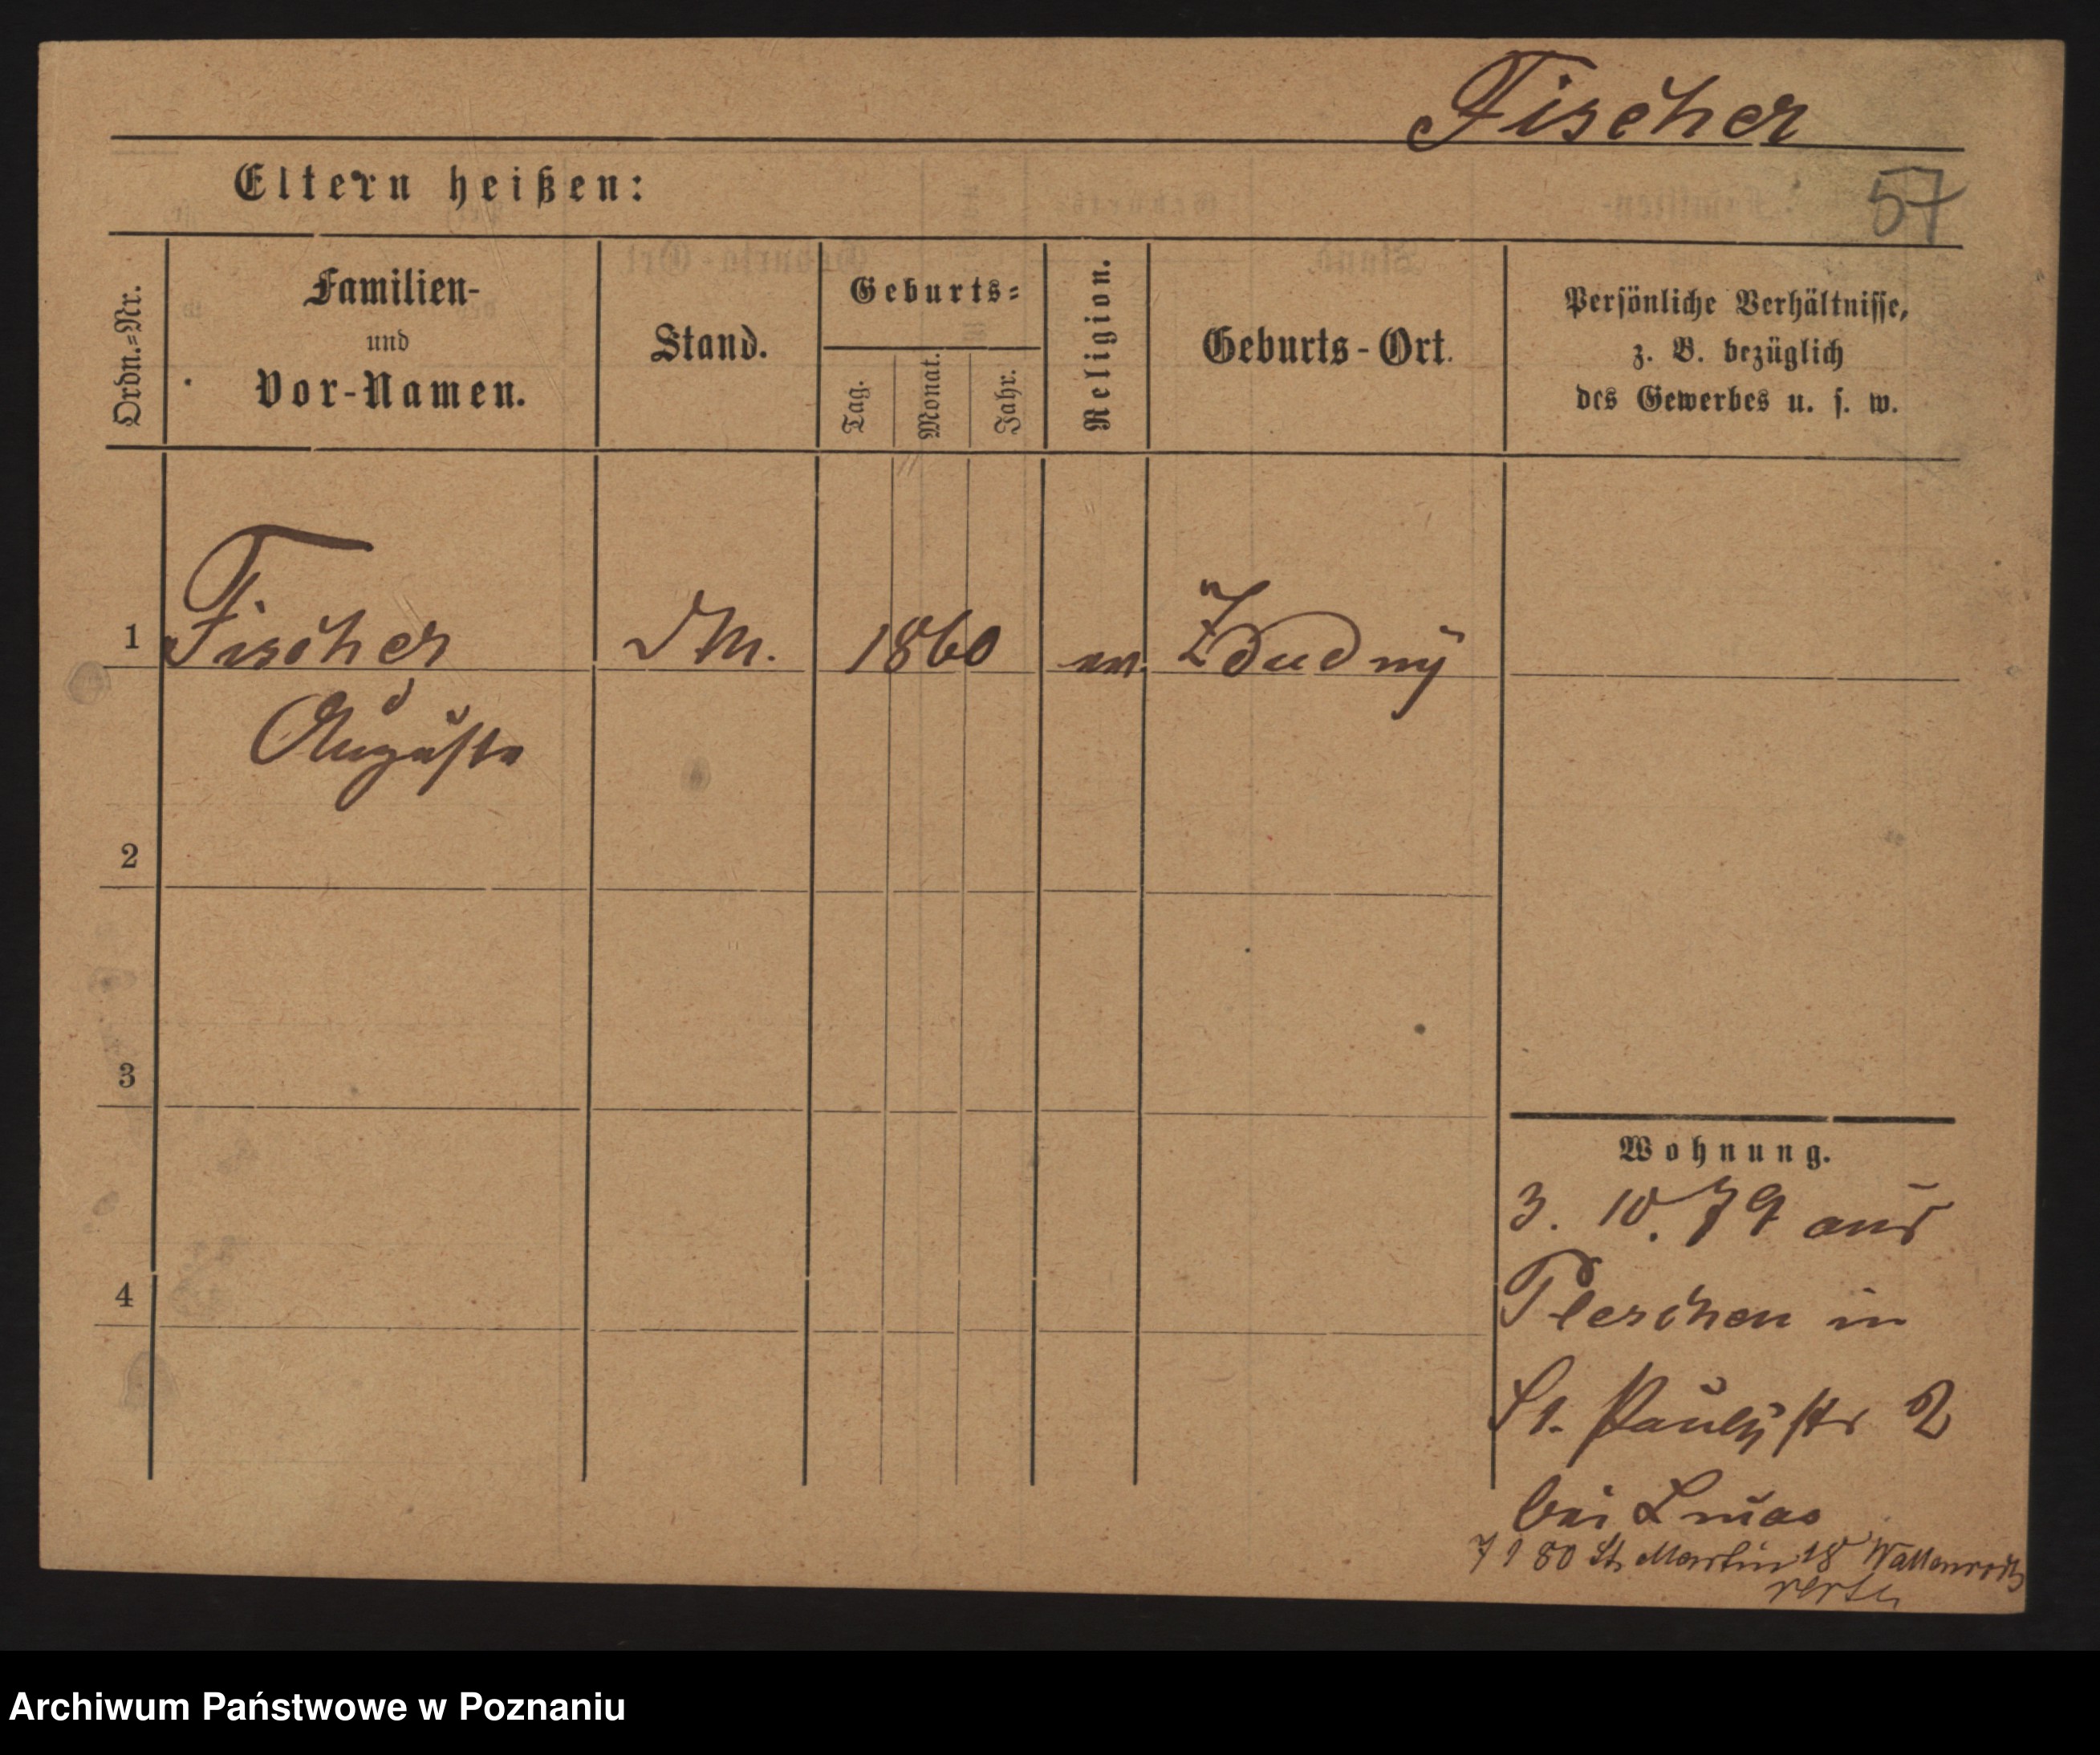 Fischer
57
Eltern heißen:
Ordn.=Nr.
Familien-
und
Vor-Namen.
Stand.
Geburts=
Tag.
Monat.
Jahr.
Religion.
Geburts-Ort.
Persönliche Verhältnisse,
z. B. bezüglich
des Gewerbes u. s. w.
1 Fischer DM. 1860 ev. Zdudny
Auguste
2
3
4
Wohnung.
3. 10. 79 aus
Pleschen in
St. Pauly str 2
bei
7 1 80 St. Martin 18 Wallenrodts
verte
Archiwum Państwowe w Poznaniu